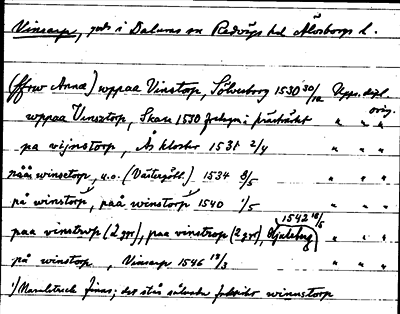 Vinsarp, gods i Dalums sn Redvägs hd Älvsborgs l.
(ffrw Annæ) wppaa Vinstorp, Sölvesborg 1530 30/12 Upps. dipl. orig.
wppaa Vinstorp, Skara 1530 " " "
pa wijnstorp, Ås kloster 1531 2/4 " " "
nääs winsetorp, u.o. (Västergötl.) 1534 8/5 " " "
på winstorp, paa winstorp 1540 1/5 " " "
paa vinstrup (2 ggr), paa vinstrop (2 ggr), 1542 18/5 " " "
på winstorp, Vinsarp 1546 18/3 " " "
1) finns; det står winnstorp